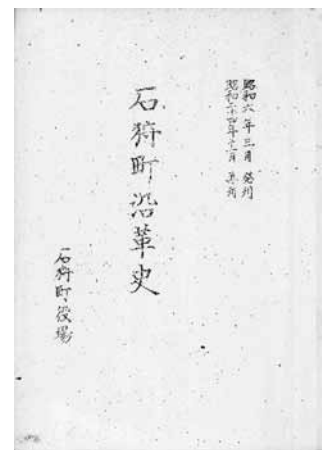 昭和六年三月 発刊
昭和二十四年十二月 再刊
石狩町沿革史
石狩町役場